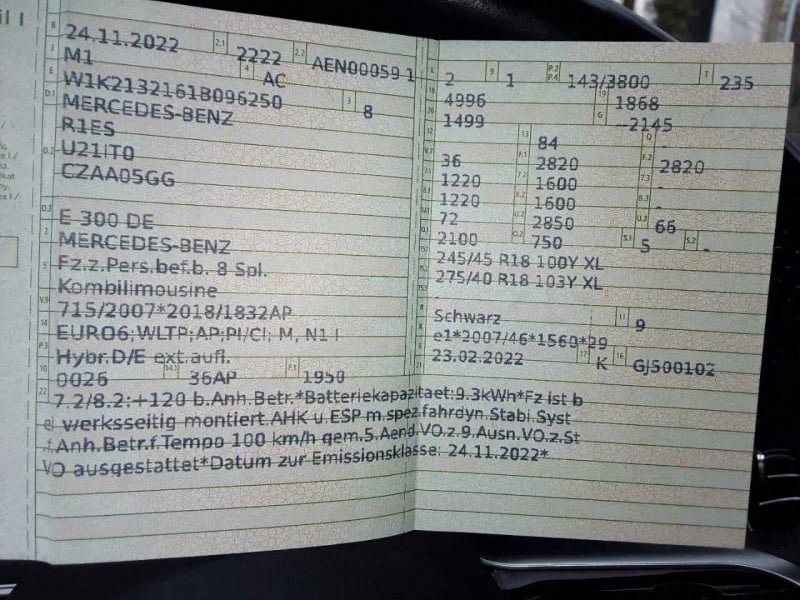 B 24.11.2022 2.1 2222 2.2 AEN00059 1
J M1 4 AC
E W1K2132161B096250 3 8
D.1 MERCEDES-BENZ
R1ES
D.2 U21IT0
CZAA05GG
D.3 E 300 DE
2 MERCEDES-BENZ
5 Fz.z.Pers.bef.b. 8 Spl.
Kombilimousine
V.9 715/2007*2018/1832AP
14 EURO6;WLTP;AP;PI/CI; M, N1 I
P.3 Hybr.D/E ext.aufl.
10 0026 14.1 36AP P.1 1950
22 7.2/8.2:+120 b.Anh.Betr.*Batteriekapazitaet:9.3kWh*Fz ist b
werksseitig montiert.AHK u.ESP m.spez.fahrdyn.Stabi.Syst
.Anh.Betr.f.Tempo 100 km/h gem.5.Aend.VO.z.9.Ausn.VO.z.St
VO ausgestattet*Datum zur Emissionsklasse: 24.11.2022*
L 2 9 1 P.2 P.4 143/3800 T 235
18 4996 19 1868
20 1499 G --2145
12 - 13 84 Q -
V.7 36 F.1 2820 F.2 2820
7.1 1220 7.2 1600 7.3 -
8.1 1220 8.2 1600 8.3 -
U.1 72 U.2 2850 U.3 66
O.1 2100 O.2 750 S.1 5 S.2 -
15.1 245/45 R18 100Y XL
15.2 275/40 R18 103Y XL
15.3 -
R Schwarz 11 9
K e1*2007/46*1560*29
6 23.02.2022 17 K 16 GJ500102
21